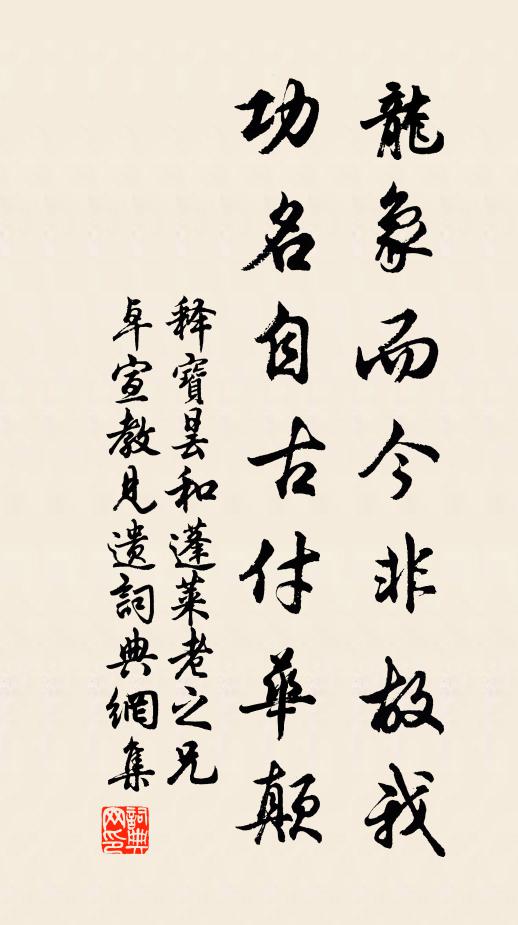 龍象而今非故我
功名自古付華顛
释寶曇和蓬萊老之兄
卓宣教見遺詞典網集
詞典网印